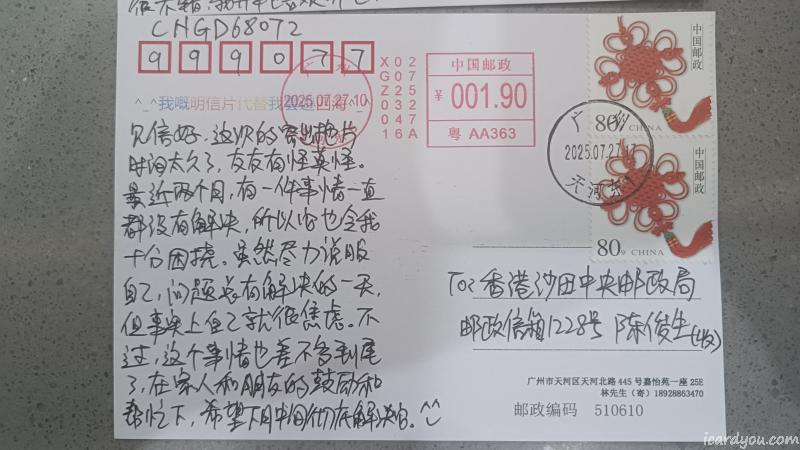 CNGD68072
999077
^_^我嘅明信片代替我去遊四海^_^
见信好。这次的寄出拖片
时间太久了，友友有怪莫怪。
最近两个月，有一件事情一直
都没有解决，所以它也令我
十分困挠。虽然尽力说服
自己，问题总有解决的一天，
但事实上自己就很焦虑。不
过，这个事情也差不多到尾
了，在家人和朋友的鼓励和
帮忙下，希望下月中间彻底解决它。^^
X02
G07
Z25
032
047
16A
中国邮政
¥ 001.90
粤 AA363
广州
2025.07.27.10
广州
2025.07.27.17
天河东
80分 CHINA
中国邮政
80分 CHINA
中国邮政
To: 香港沙田中央邮政局
邮政信箱1228号 陈俊生(收)
广州市天河区天河北路 445 号嘉怡苑一座 25E
林先生（寄）18928863470
邮政编码 510610
icardyou.com